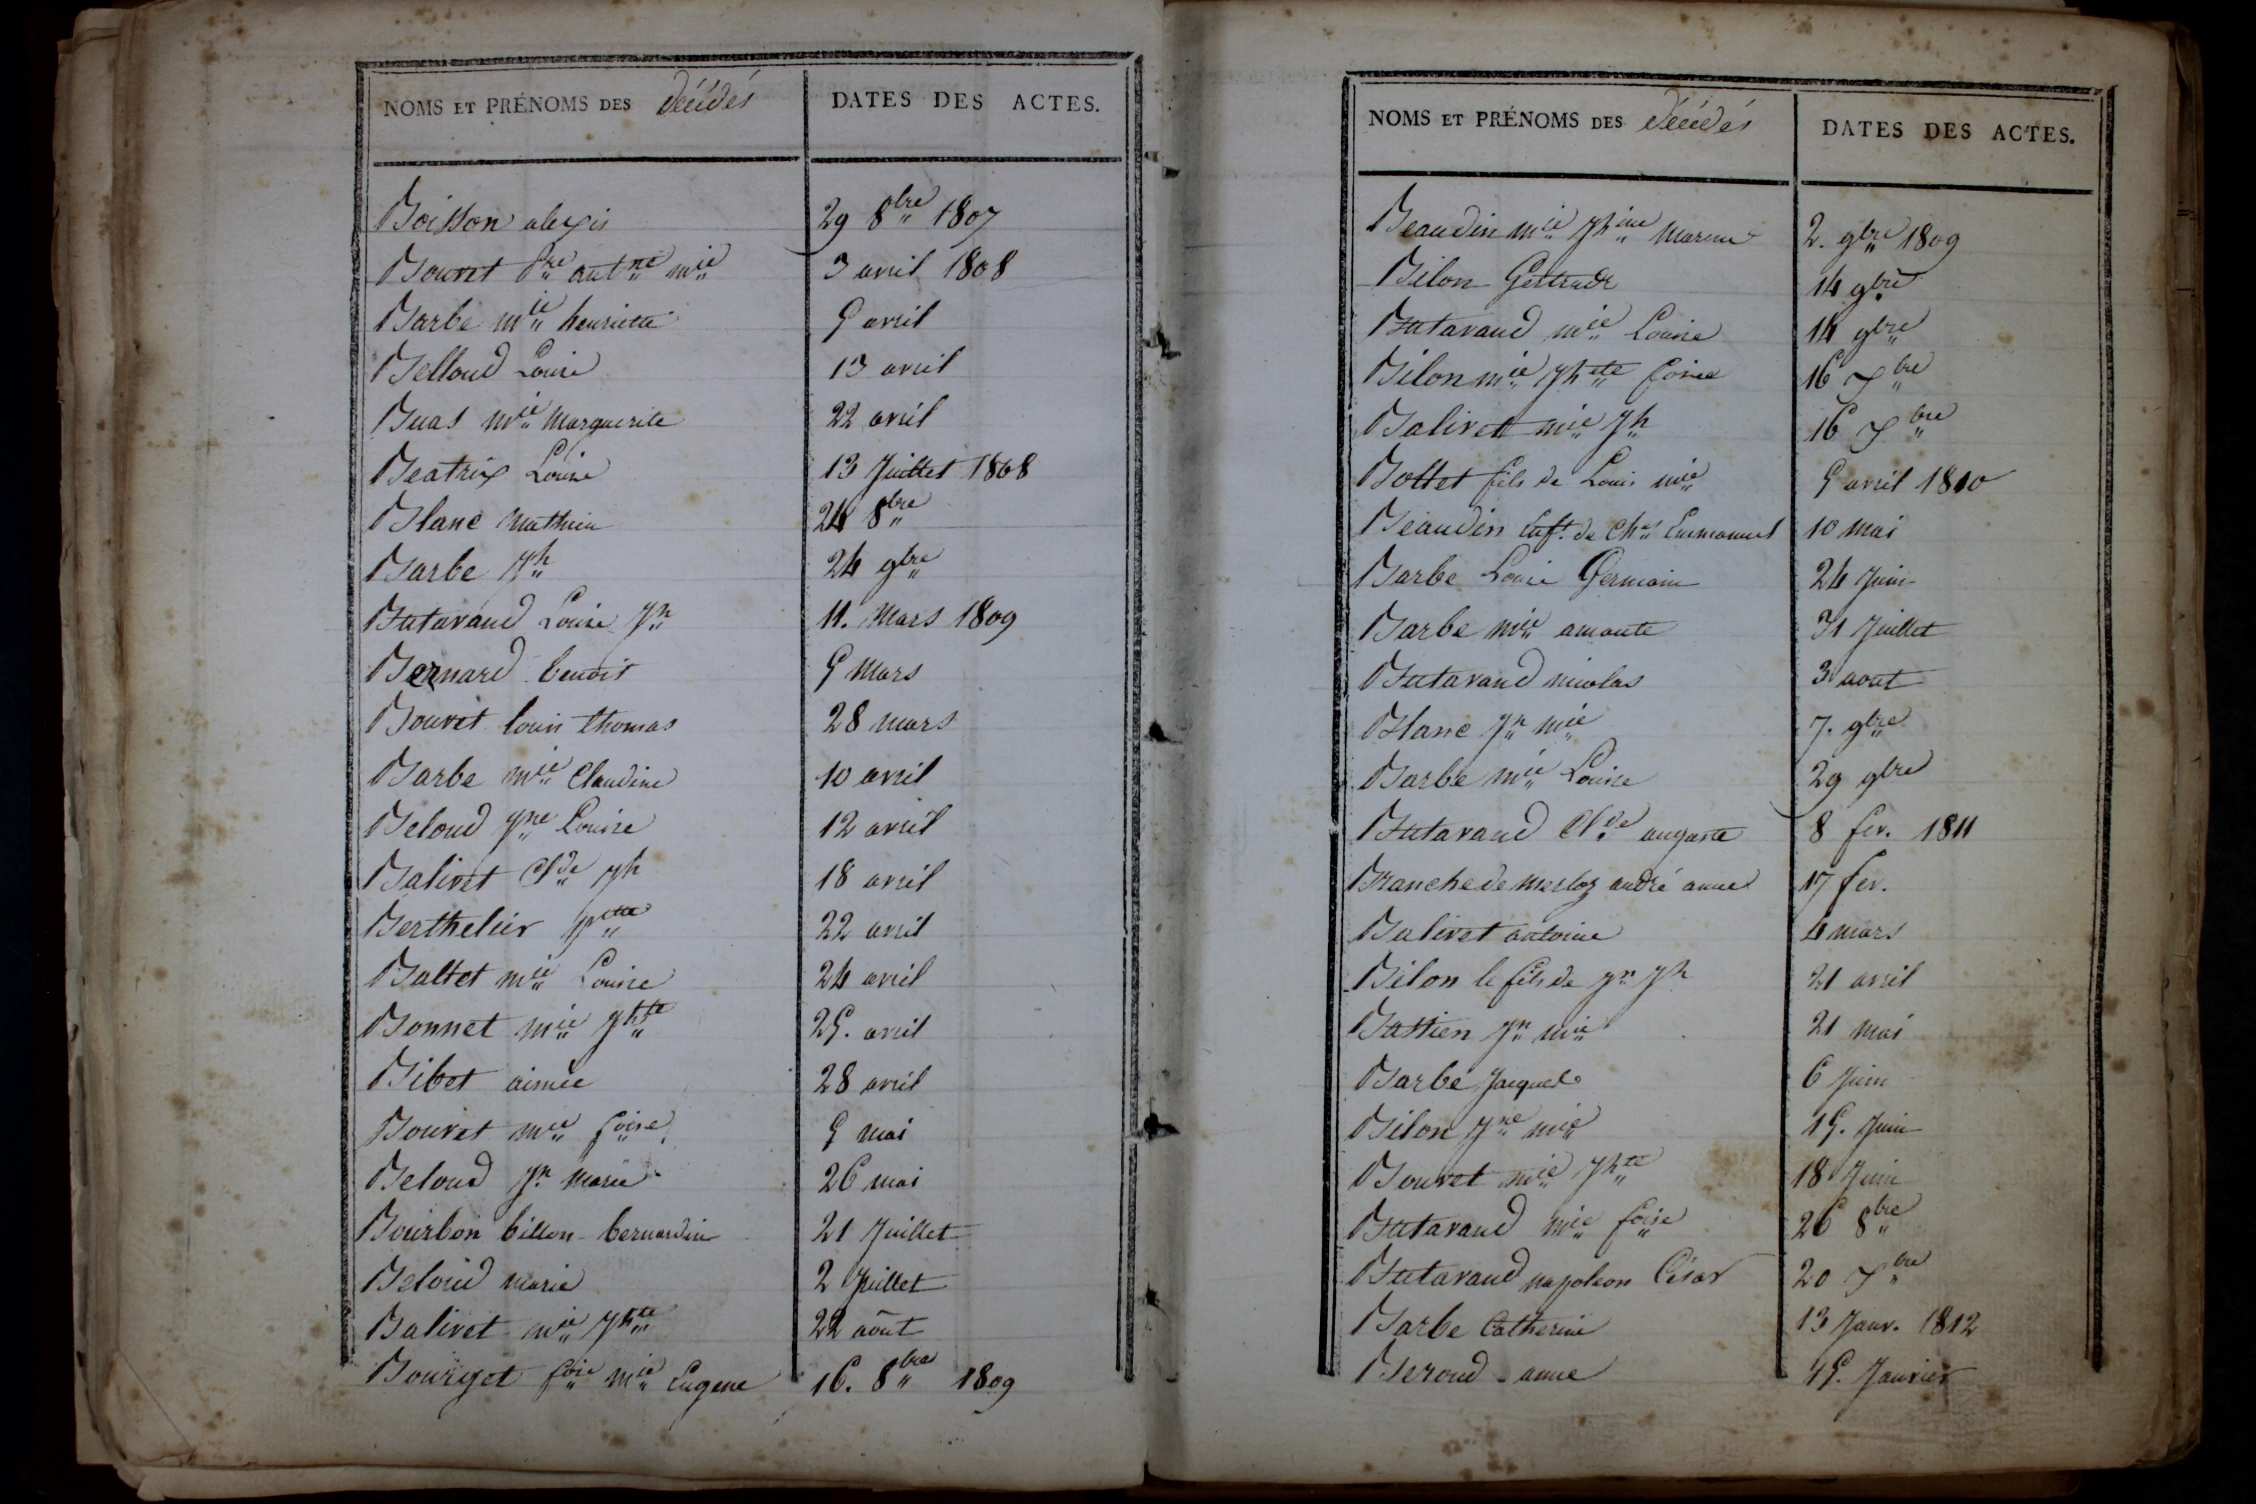 NOMS ET PRÉNOMS DES décédés DATES DES ACTES.
Boisson alexis 29 8bre 1807
Bouvet Pre antne mie 3 avril 1808
Barbe mie henriette 9 avril
Belloud Louise 13 avril
Buas mie marguerite 22 avril
Beatrix Louise 13 Juillet 1808
Blanc mathieu 24 8bre
Barbe Jh 24 9bre
Butavand Louise Jn 11. Mars 1809
Bernard benoit 9 Mars
Bouvet louis thomas 28 mars
Barbe mie Claudine 10 avril
Beloud Jne Louise 12 avril
Balivet Clde Jh 18 avril
Berthelier Pette 22 avril
Baltet mie Louise 24 avril
Bonnet mie Jhtte 25. avril
Bibet aimée 28 avril
Bouvet mie foise 9 mai
Beloud Jn marie 26 mai
Bourbon billon bernardin 21 Juillet
Beloud marie 2 Juillet
Balivet mie Jhtte 22 août
Bourget foise mie Eugene 16. 8bre 1809
NOMS ET PRÉNOMS DES décédés DATES DES ACTES.
Beaudin mie Jhine 2. 9bre 1809
Bilon Gertrude 14 9bre
Butavand mie Louise 14 9bre
Bilon mie Jhette foise 16 7bre
Balivet mie Jh 16 7bre
Bottet fils de Louis mie 9 avril 1810
Beaudin Enft. de Chs Emmanuel 10 mai
Barbe Louis Germain 24 Juin
Barbe mie amante 31 Juillet
Butavand nicolas 30 aout
Blanc Jn mie 7. 9bre
Barbe mie Louise 29 9bre
Butavand Clde auguste 8 fev. 1811
Branche de merloz andré anne 17 fev.
Balivet antoine 4 mars
Bilon le fils de Jn Jh 21 avril
Bastien Jn mie 21 mai
Barbe Jacques 6 Juin
Bilon Jne mie 15. Juin
Bouvet mie Jhte 18 Juin
Butavand mie foise 26 8bre
Butavand napoleon César 20 7bre
Barbe Catherine 13 Janv. 1812
Beroud anne 15. Janvier